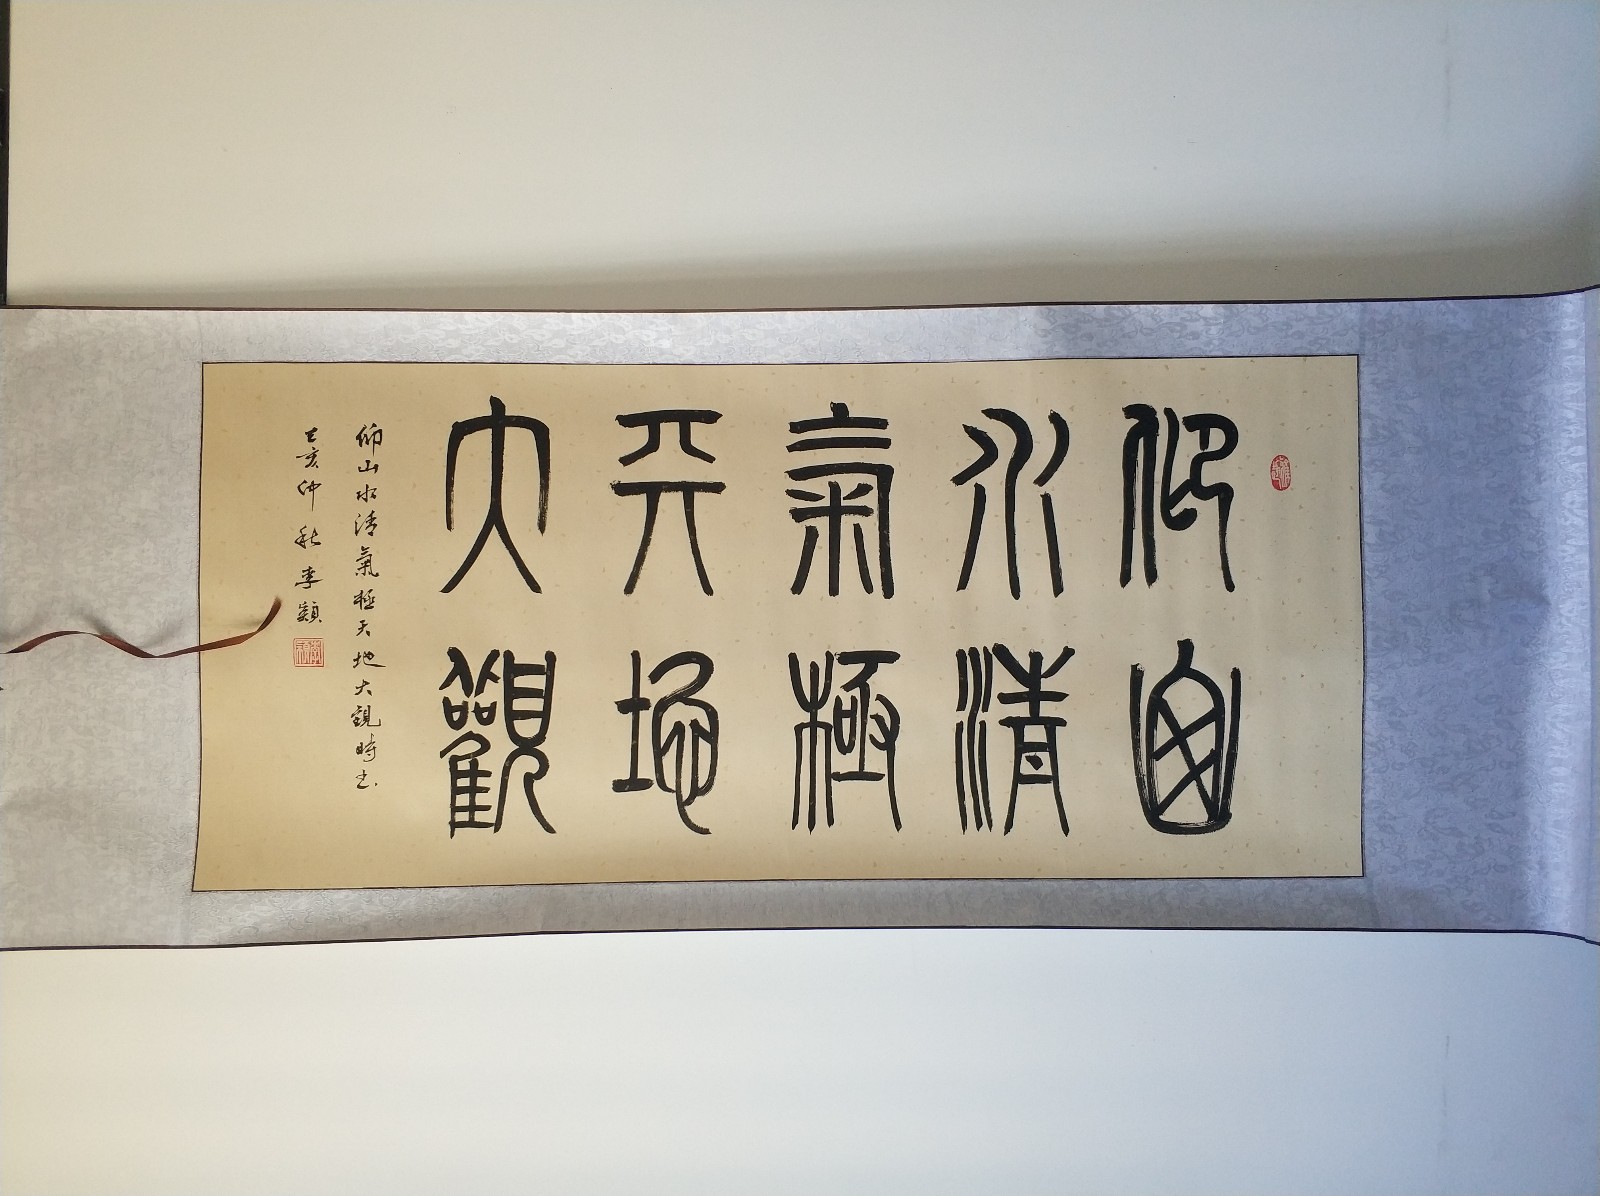 仰山
水清
氣極
天地
大觀
仰山水清氣極天地大觀時书
己亥仲秋李穎